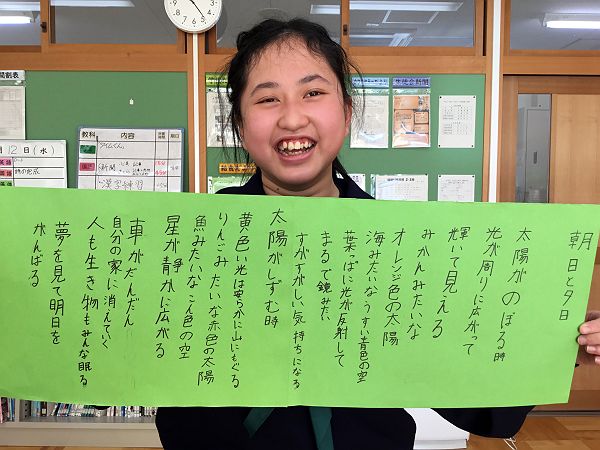 朝日と夕日
太陽がのぼる時
光が周りに広がって
輝いて見える
みかんみたいな
オレンジ色の太陽
海みたいなうすい青色の空
葉っぱに光が反射して
まるで鏡みたい
すがすがしい気持ちになる
太陽がしずむ時
黄色い光は安らかに山にもぐる
りんごみたいな赤色の太陽
魚みたいなこん色の空
星が静かに広がる
車がだんだん
自分の家に消えていく
人も生き物もみんな眠る
夢を見て明日を
がんばる
間割表
12日(水)
教科
内容
漢字練習
生徒会新聞